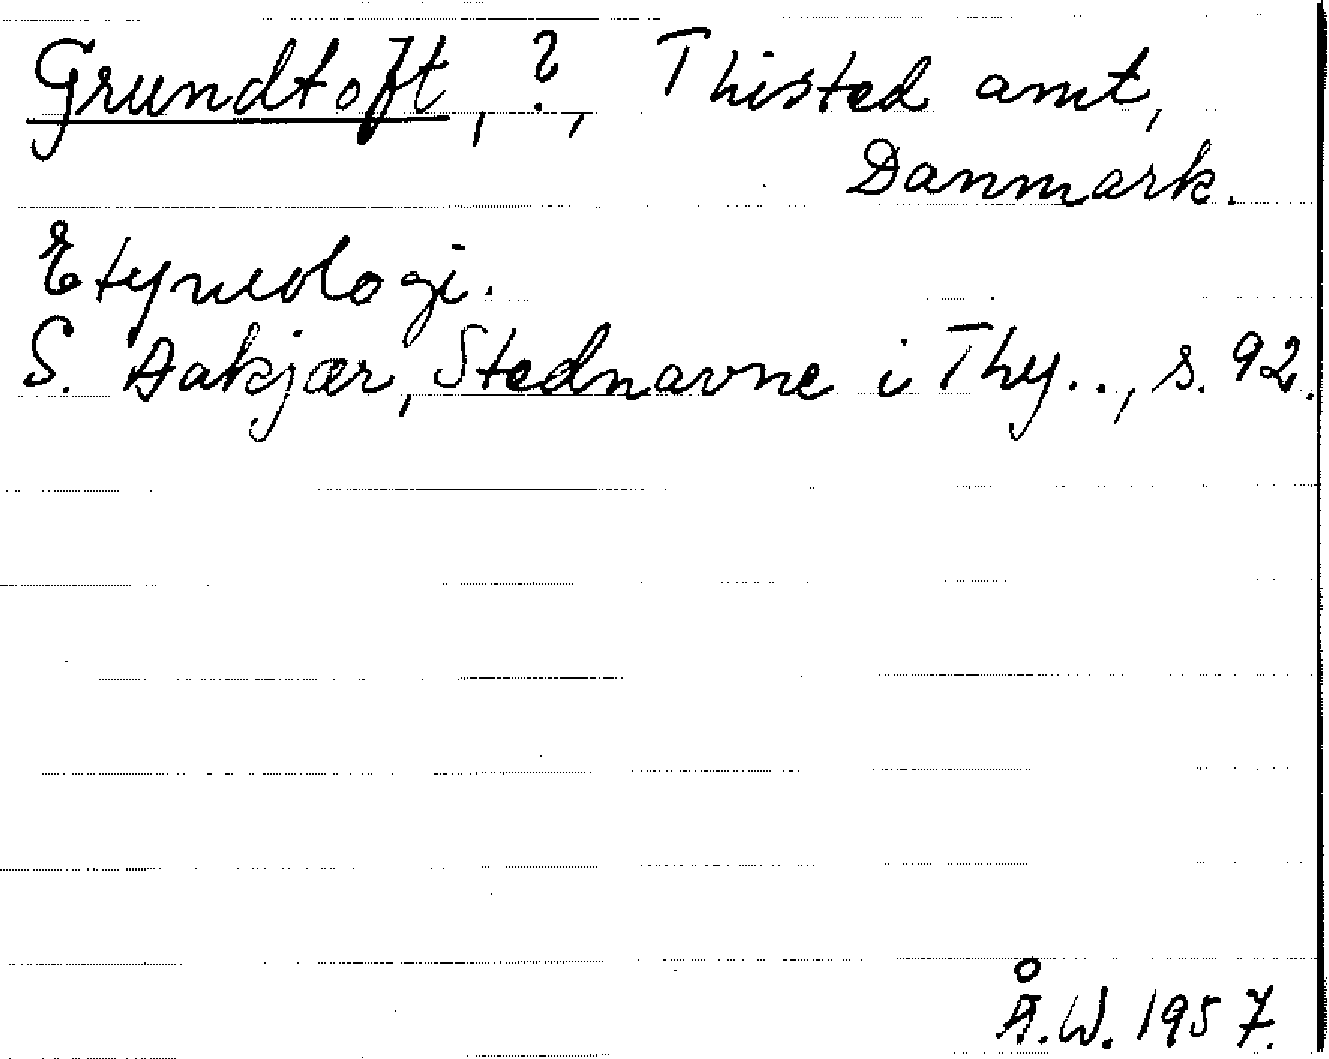 Grundtoft, ?, Thisted amt,
Danmark.
Etymologi.
S. Aakjær, Stednavne i Thy.., s. 92.
Å.W. 1957.